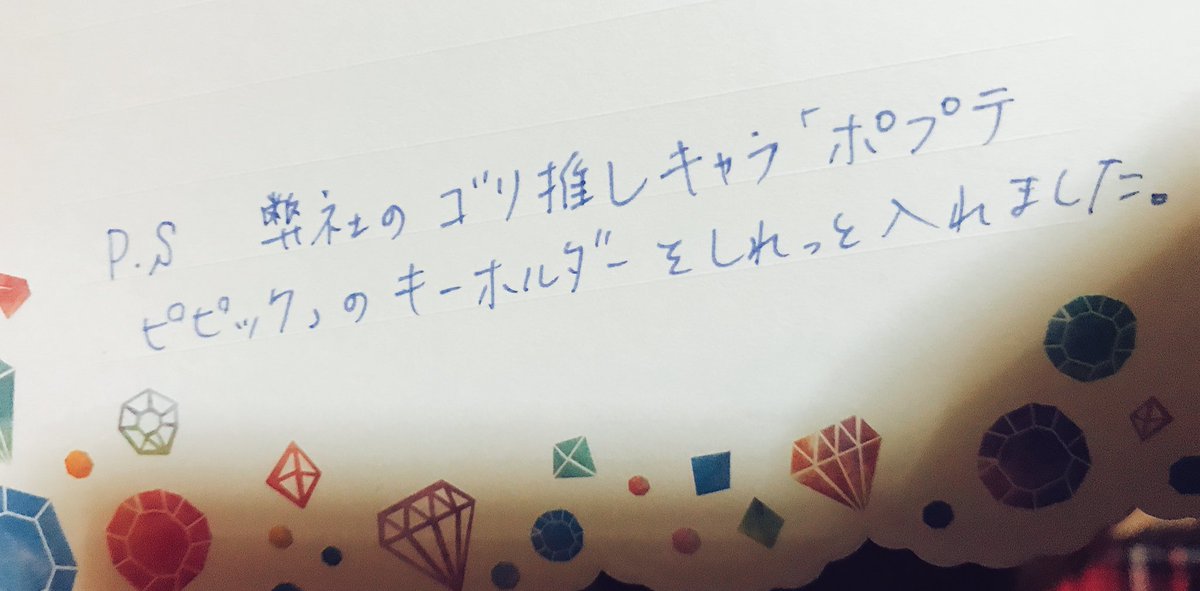 P.S 弊社のゴリ推しキャラ「ポプテ
ピピック」のキーホルダーをしれっと入れました。